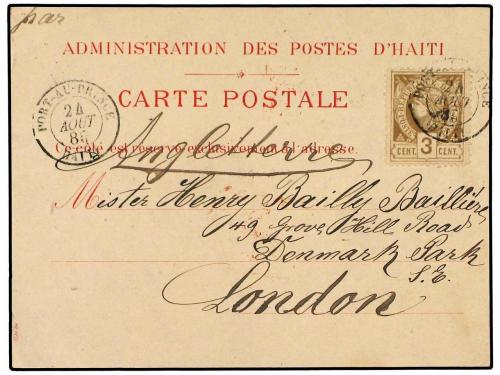 par
ADMINISTRATION DES POSTES D'HAITI
CARTE POSTALE
PORT-AU-PRINCE
24
AOUT
Ce côté est reservé exclusivement à l'adresse.
Angleterre
CENT. 3 CENT.
Mister Henry Bailly Baillière
49 Grove Hill Road
Denmark Park
S.E.
London